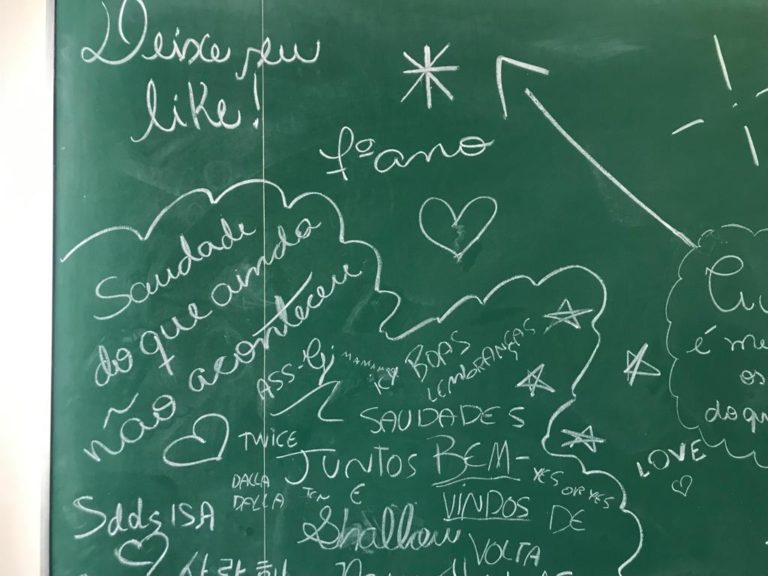 Deixe seu
like!
1º ano
Saudade
do que ainda
não aconteceu
ASS-Gj
BOAS
LEMBRANÇAS
SAUDADES
TWICE
JUNTOS BEM-
VINDOS DE
VOLTA
YES OR YES
DALLA
DALLA
E
Shallow
Sdds ISA
사랑해
LOVE
é me
os
do qu